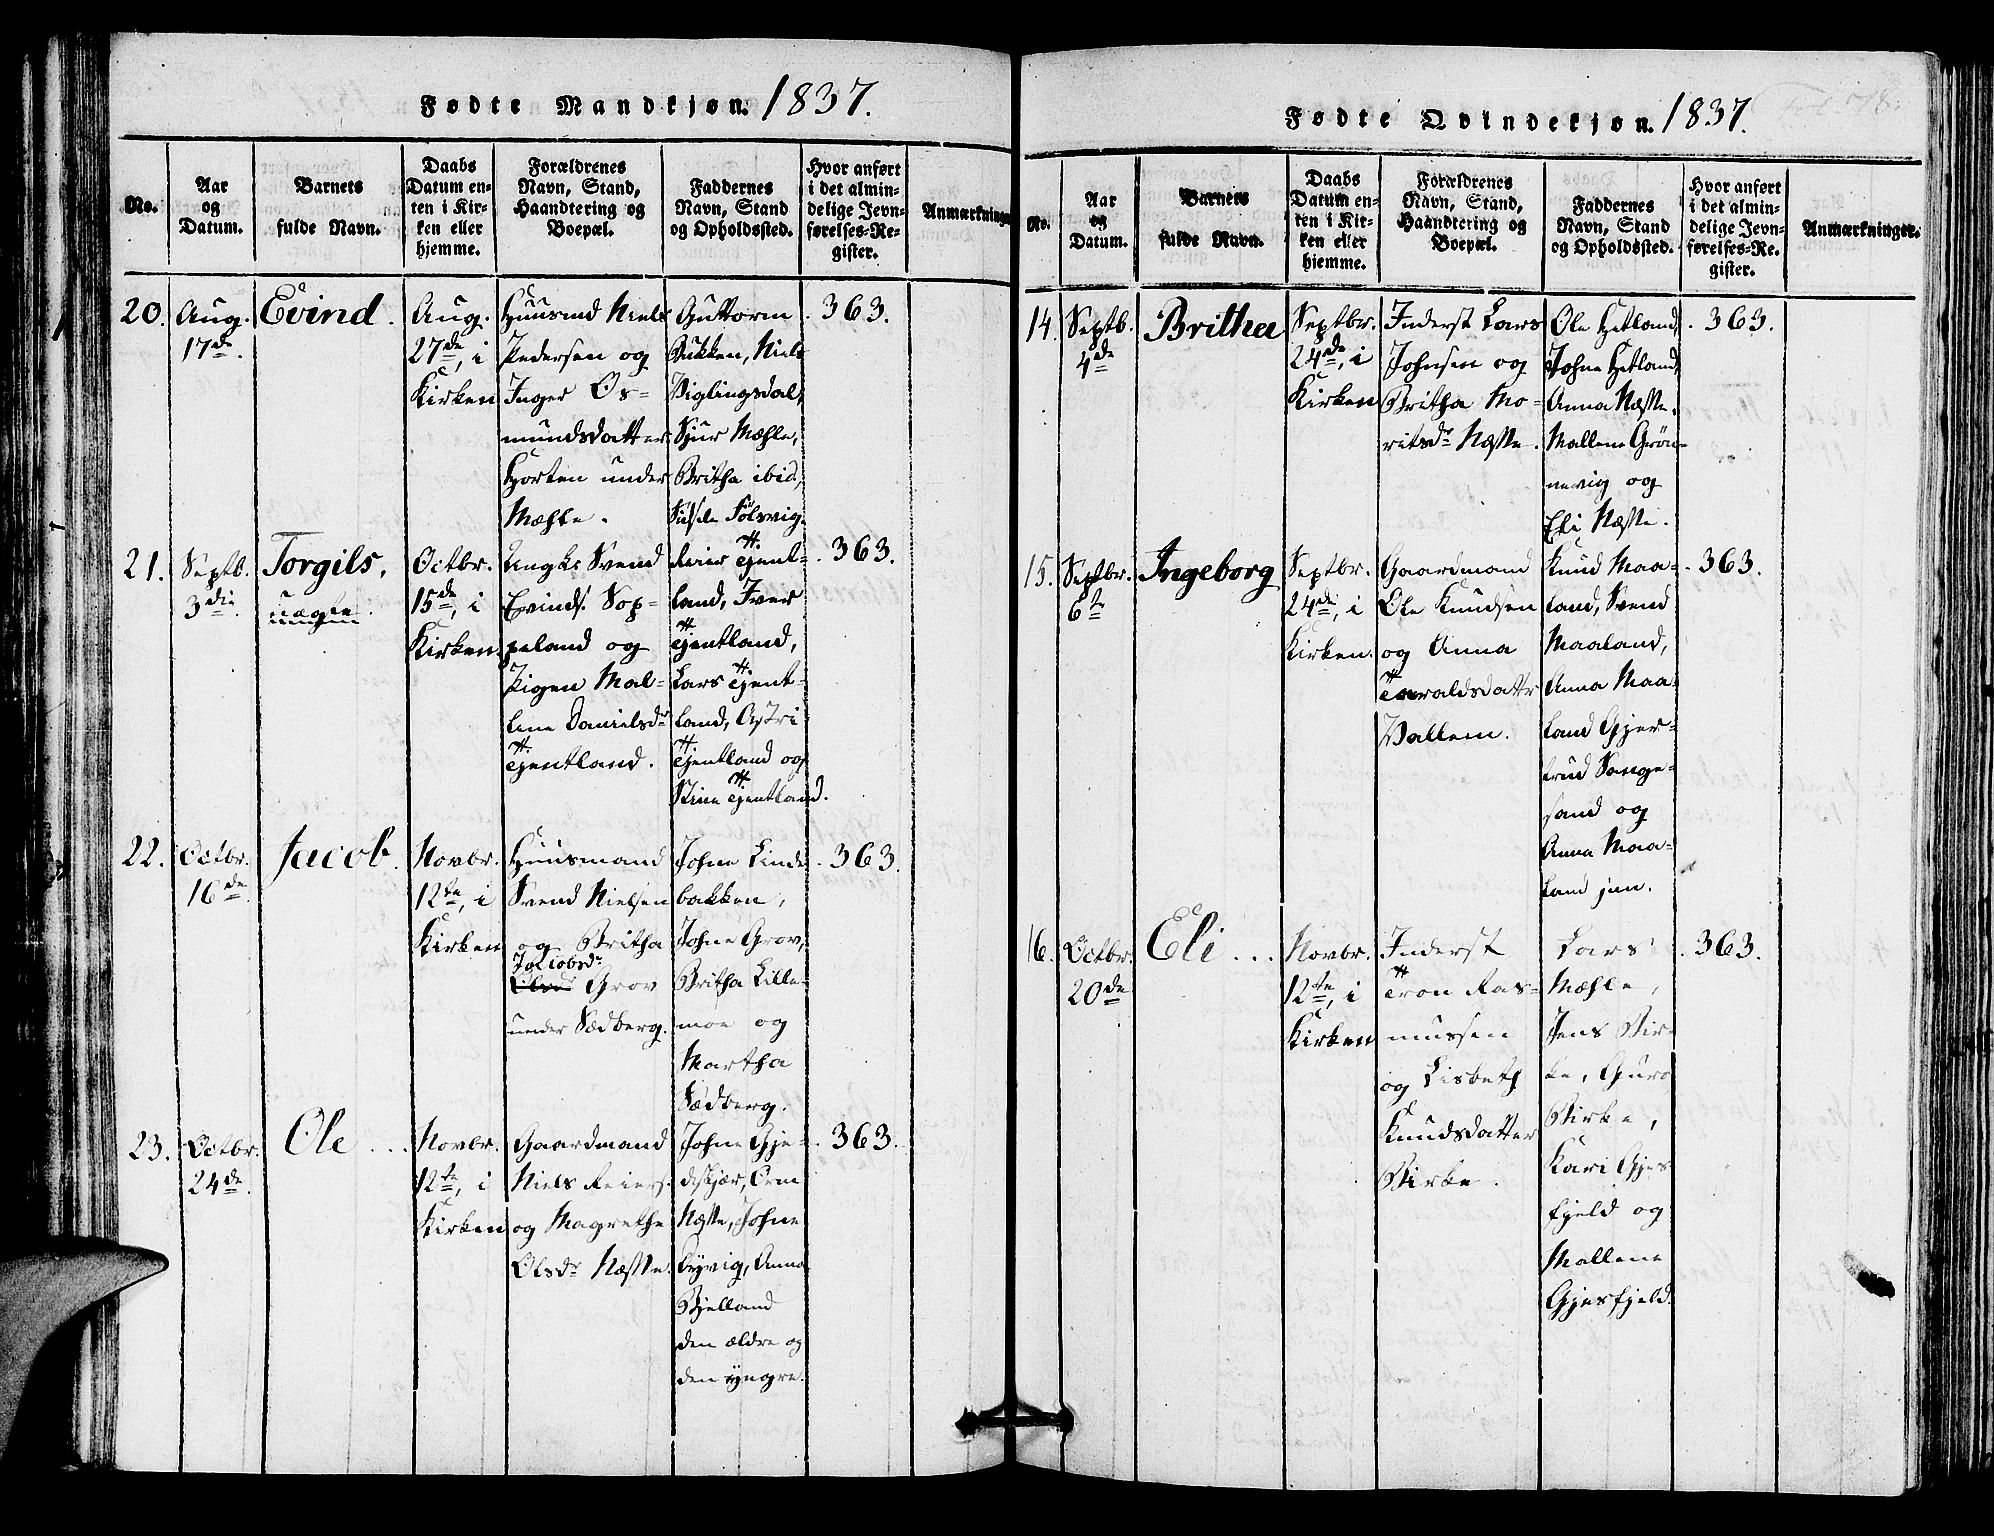 Fødte Mandkjøn. 1837.
No.
Aar
og
Datum.
Barnets
fulde Navn.
Daabs
Datum en-
ten i Kir-
ken eller
hjemme.
Forældrenes
Navn, Stand,
Haandtering og
Boepæl.
Faddernes
Navn, Stand
og Opholdssted.
Hvor anført
i det almin-
delige Jevn-
førelses-Re-
gister.
Anmærkninger
20.
Aug.
17de.
Evind.
Aug.
27de, i
Kirken
Huusmd Niels
Pedersen og
Inger Os-
mundsdatter
Horten under
Mæhle.
Guttorm
Bukken, Niels
Viglingsdal,
Siur Mæhle,
Britha ibid.,
Følsvig.
363.
21.
Septb.
3die.
Torgils,
uægte.
Octbr.
15de, i
Kirken.
Ungkl Svend
Evinds. Sop-
peland og
Pigen Mal-
lene Danielsdr
Tjentland.
Reier Tjent-
land, Iver
Tjentland,
Lars Tjent-
land, Astri
Tjentland og
Stine Tjentland.
363.
22.
Octbr.
16de.
Jacob.
Novbr.
12te, i
Kirken
Huusmand
Svend Nielsen
og Britha
Jacobsdr
Grov
under Sædberg.
Johne Linde-
bakken,
Johne Grov,
Britha Lille-
moe og
Martha
Sædberg.
363.
23.
Octbr.
24de.
Ole ...
Novbr.
12te, i
Kirken
Gaardmand
Niels Reiers.
og Magrethe
Olsdr Næsse.
Johne Gje-
deskjær, Orm
Næsse, Johne
Byvig, Anna
Bjelland
den ældre og
den yngre.
363.
Fødte Qvindekjøn. 1837.
No.
Aar
og
Datum.
Barnets
fulde Navn.
Daabs
Datum en-
ten i Kir-
ken eller
hjemme.
Forældrenes
Navn, Stand,
Haandtering og
Boepæl.
Faddernes
Navn, Stand
og Opholdssted.
Hvor anført
i det almin-
delige Jevn-
førelses-Re-
gister.
Anmærkninger.
14.
Septb.
4de
Britha
Septbr.
24de, i
Kirken
Inderst Lars
Johnsen og
Britha Mo-
ritsdr Næsse.
Ole Hetland,
Johne Hetland,
Anna Næsse,
Mallene Grøn-
nevig og
Eli Næsse.
363.
15.
Septbr.
6te
Ingeborg
Septbr.
24de, i
Kirken.
Gaardmand
Ole Knudsen
og Anna
Taraldsdattr
Vallem.
Knud Maa-
land, Svend
Maaland,
Anna Maa-
land Gjer-
trud Sange-
sand og
Anna Maa-
land jun.
363.
16.
Octbr.
20de
Eli ...
Novbr.
12te, i
Kirken
Inderst
Tron Ras-
mussen
og Lisbeth
Knudsdatter
Birke.
Lars
Mæhle,
Jens Bir-
ke, Guro
Birke,
Kari Gjes-
fjeld og
Mallene
Gjesfjeld.
363.